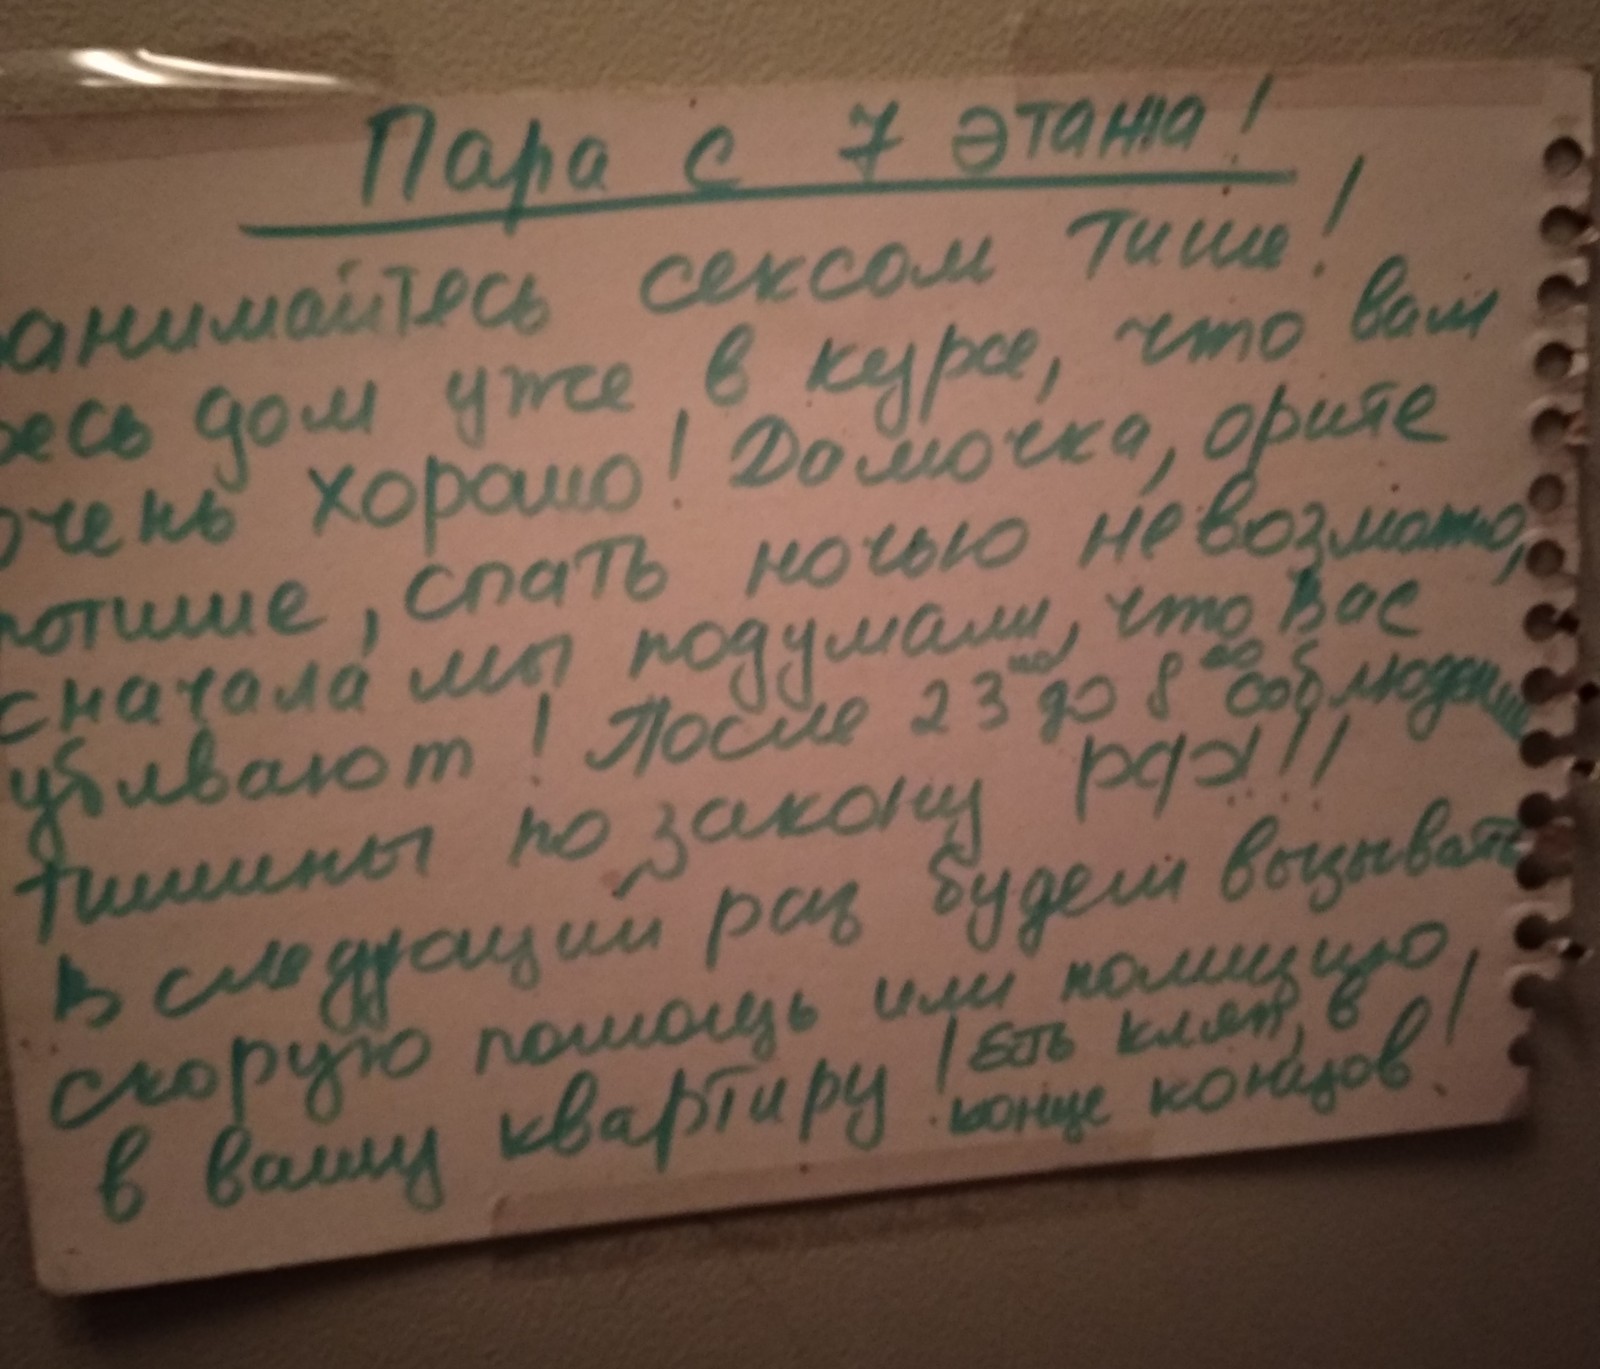 Пара с 7 этажа!
занимайтесь сексом тише!
весь дом уже в курсе, что вам
очень хорошо! Дамочка, орите
потише, спать ночью невозможно,
сначала мы подумали, что Вас
убивают! После 23 00 до 8 00 соблюдение
тишины по закону РФ!!!
В следующий раз будем вызывать
скорую помощь или полицию
в вашу квартиру! Есть кляп, в
конце концов!